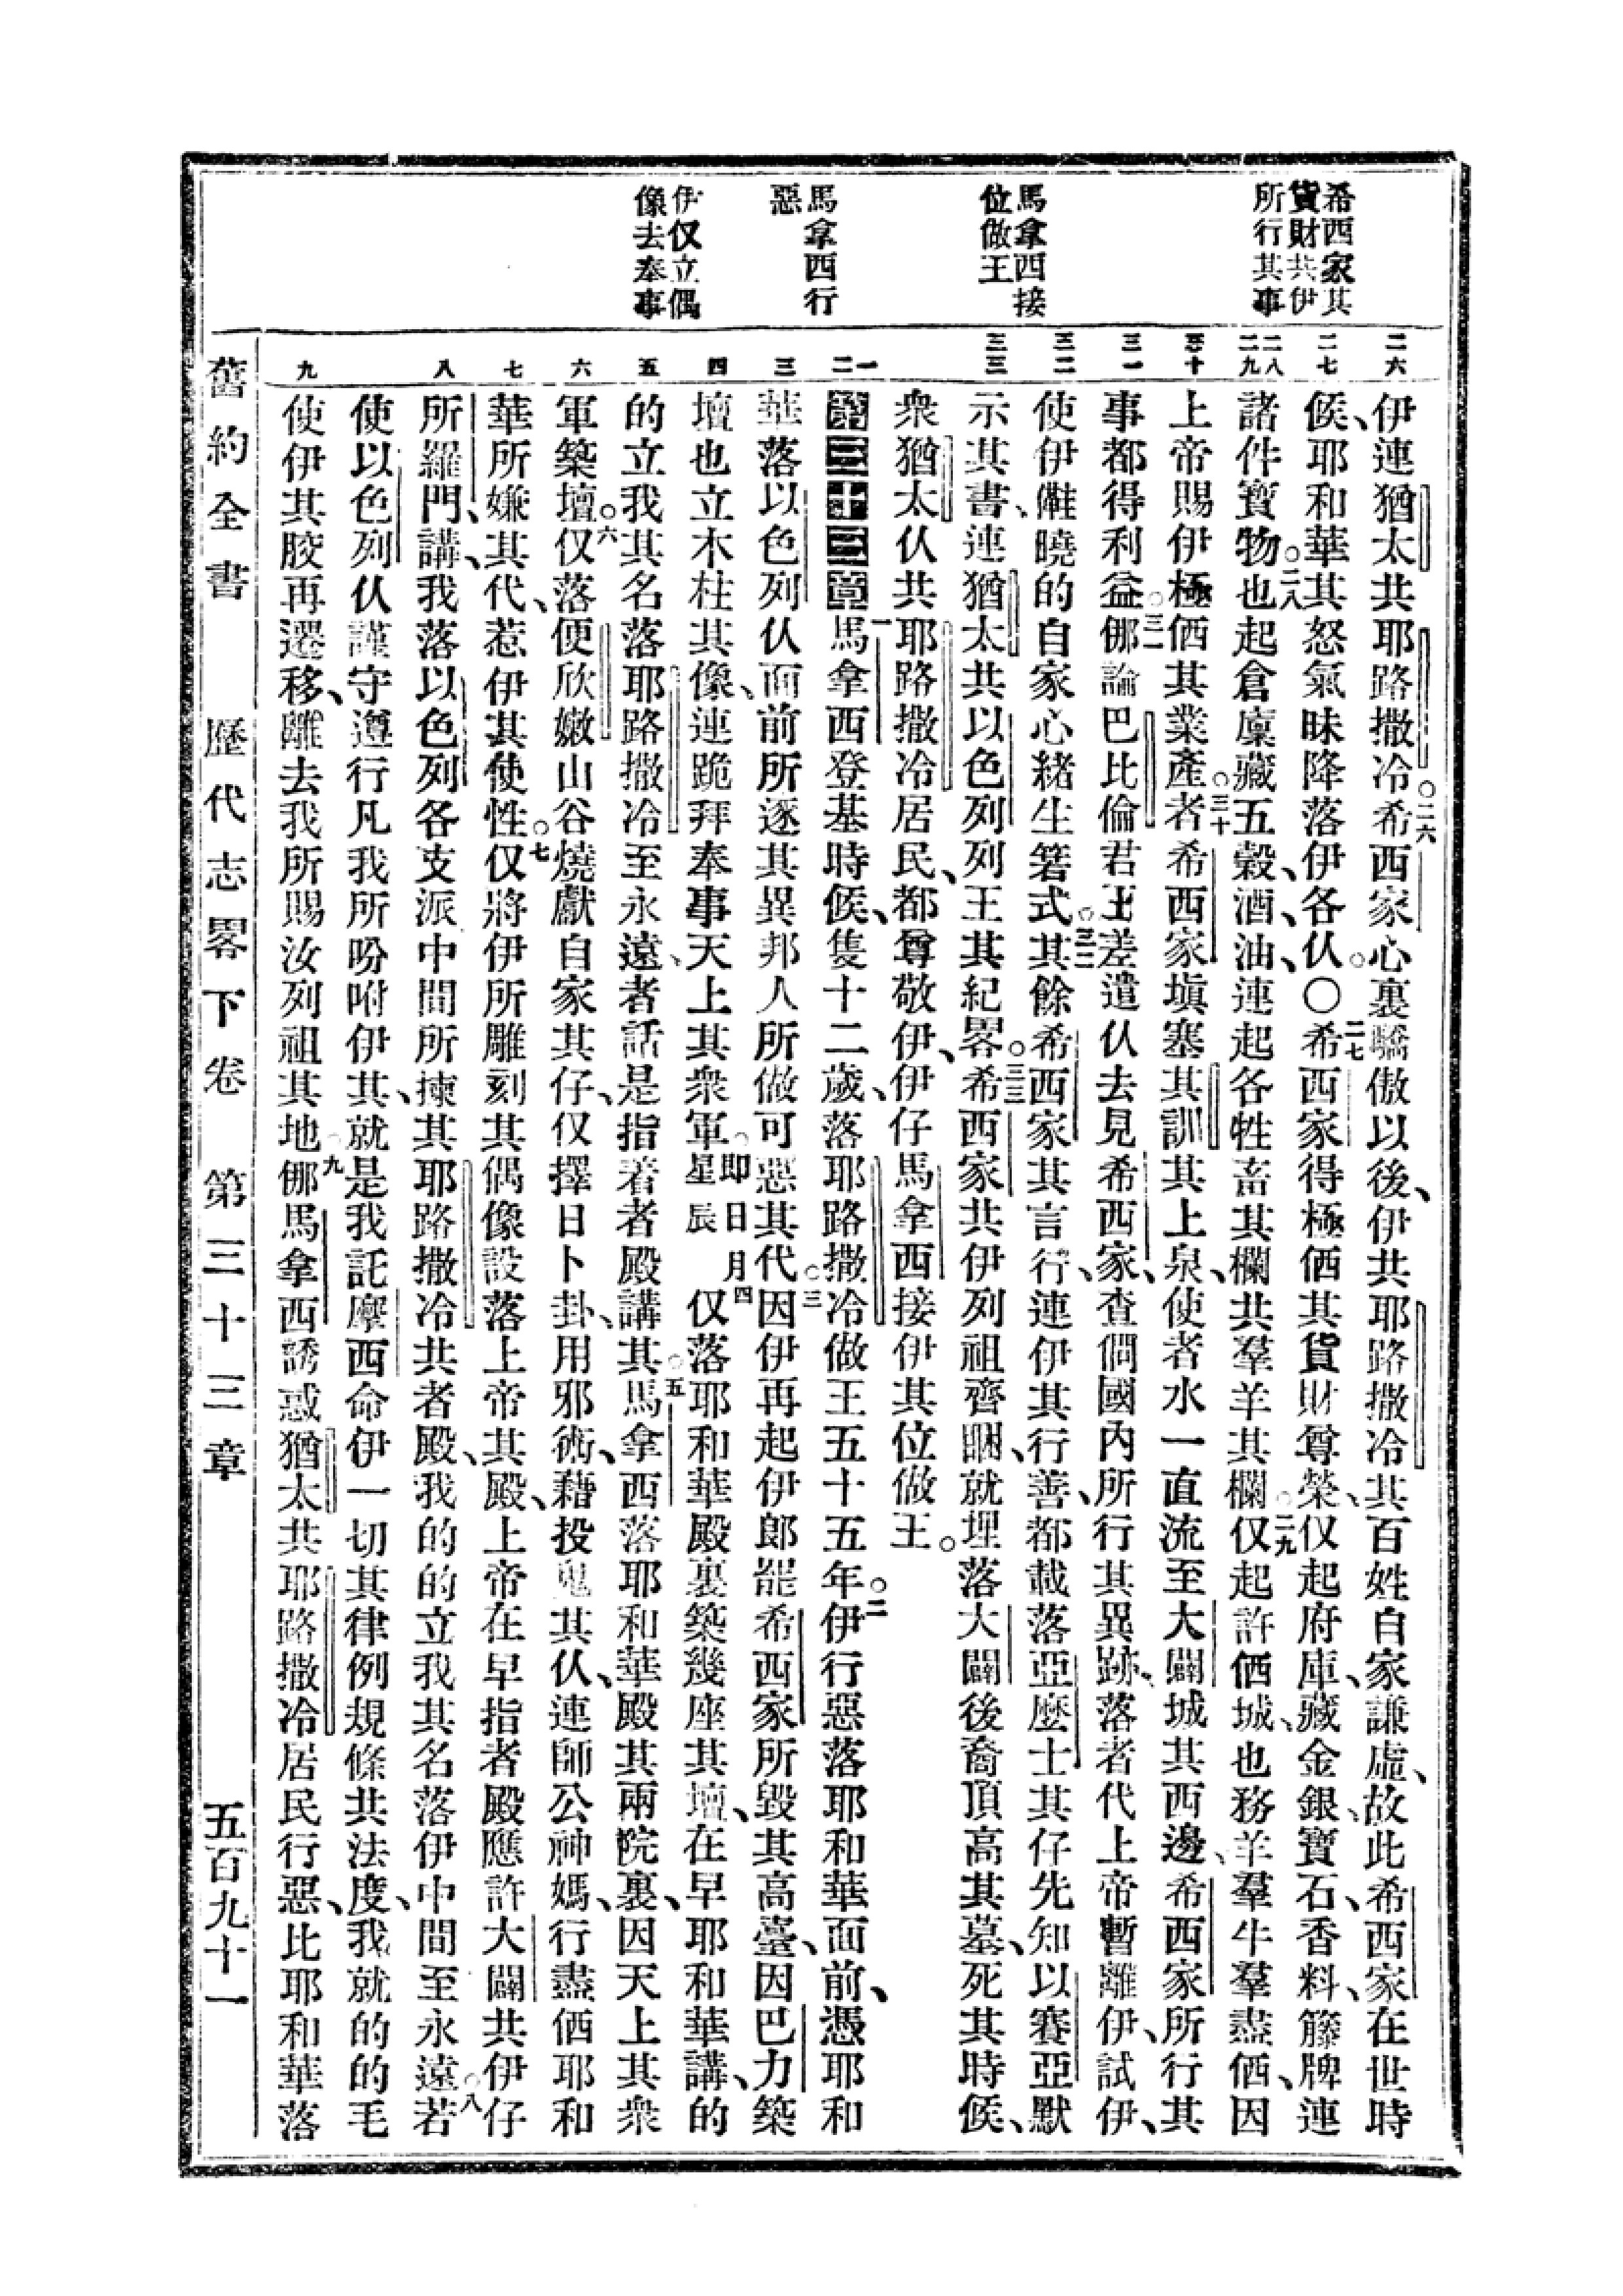 希西家其
貨財共伊
所行其事
馬拿西接
位做王
馬拿西行
惡
伊仅立偶
像去奉事
二六
二七
二八
二九
三十
三一
三二
三三
一
二
三
四
五
六
七
八
九
伊連猶太共耶路撒冷○二六希西家心裏驕傲以後、伊共耶路撒冷其百姓自家謙虛、故此希西家在世時
候、耶和華其怒氣昧降落伊各仈○○二七希西家得極㑚其貨財尊榮、仅起府庫、藏金銀、寶石、香料、籐牌連
諸件寶物○二八也起倉廩藏五穀、酒、油、連起各牲畜其欄共羣羊其欄○二九仅起許㑚城、也務羊羣牛羣盡㑚、因
上帝賜伊極㑚其業產○三十者希西家塡塞其訓其上泉、使者水一直流至大闢城其西邊、希西家所行其
事都得利益○三一挪論巴比倫君王差遣仈去見希西家、查問國內所行其異跡、落者代上帝暫離伊、試伊、
使伊儺曉的自家心緒生簭式○三二其餘希西家其言行、連伊其行善、都載落亞麼士其仔先知以賽亞默
示其書、連猶太共以色列列王其紀畧○三三希西家共伊列祖齊睏、就埋落大闢後裔頂高其墓、死其時候、
衆猶太仈共耶路撒冷居民、都尊敬伊、伊仔馬拿西接伊其位做王。
第三十三章一馬拿西登基時候、隻十二歲、落耶路撒冷做王五十五年○二伊行惡落耶和華面前、憑耶和
華落以色列仈面前所逐其異邦人所做可惡其代○三因伊再起伊郎罷希西家所毀其高臺、因巴力築
壇也立木柱其像、連跪拜奉事天上其衆軍○即日月星辰四仅落耶和華殿裏築幾座其壇、在早耶和華講、的
的立我其名落耶路撒冷至永遠、者話是指着者殿講其○五馬拿西落耶和華殿其兩院裏、因天上其衆
軍築壇○六仅落便欣嫩山谷燒獻自家其仔、仅擇日卜卦、用邪術、藉投鬼其仈、連師公神媽、行盡㑚耶和
華所嫌其代、惹伊其使性○七仅將伊所雕刻其偶像設落上帝其殿、上帝在早指者殿應許大闢共伊仔
所羅門、講、我落以色列各支派中間所揀其耶路撒冷共者殿、我的的立我其名落伊中間至永遠○八若
使以色列仈謹守遵行凡我所吩咐伊其、就是我託摩西命伊一切其律例規條共法度、我就的的毛
使伊其骹再遷移、離去我所賜汝列祖其地○九挪馬拿西誘惑猶太共耶路撒冷居民行惡、比耶和華落
舊約全書 歷代志畧下卷 第三十三章 五百九十一